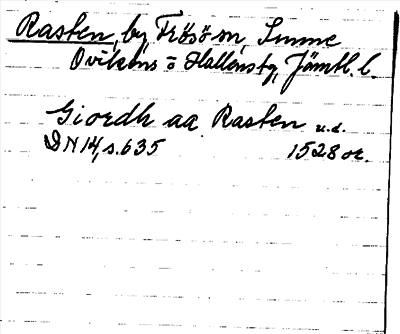 Rasten, by, Frösö sn, Sunne
Ovikens o Hallens tg, Jämtl. l.
Giordh aa Rasten u.d.
DN 14, s. 635 1528 or.